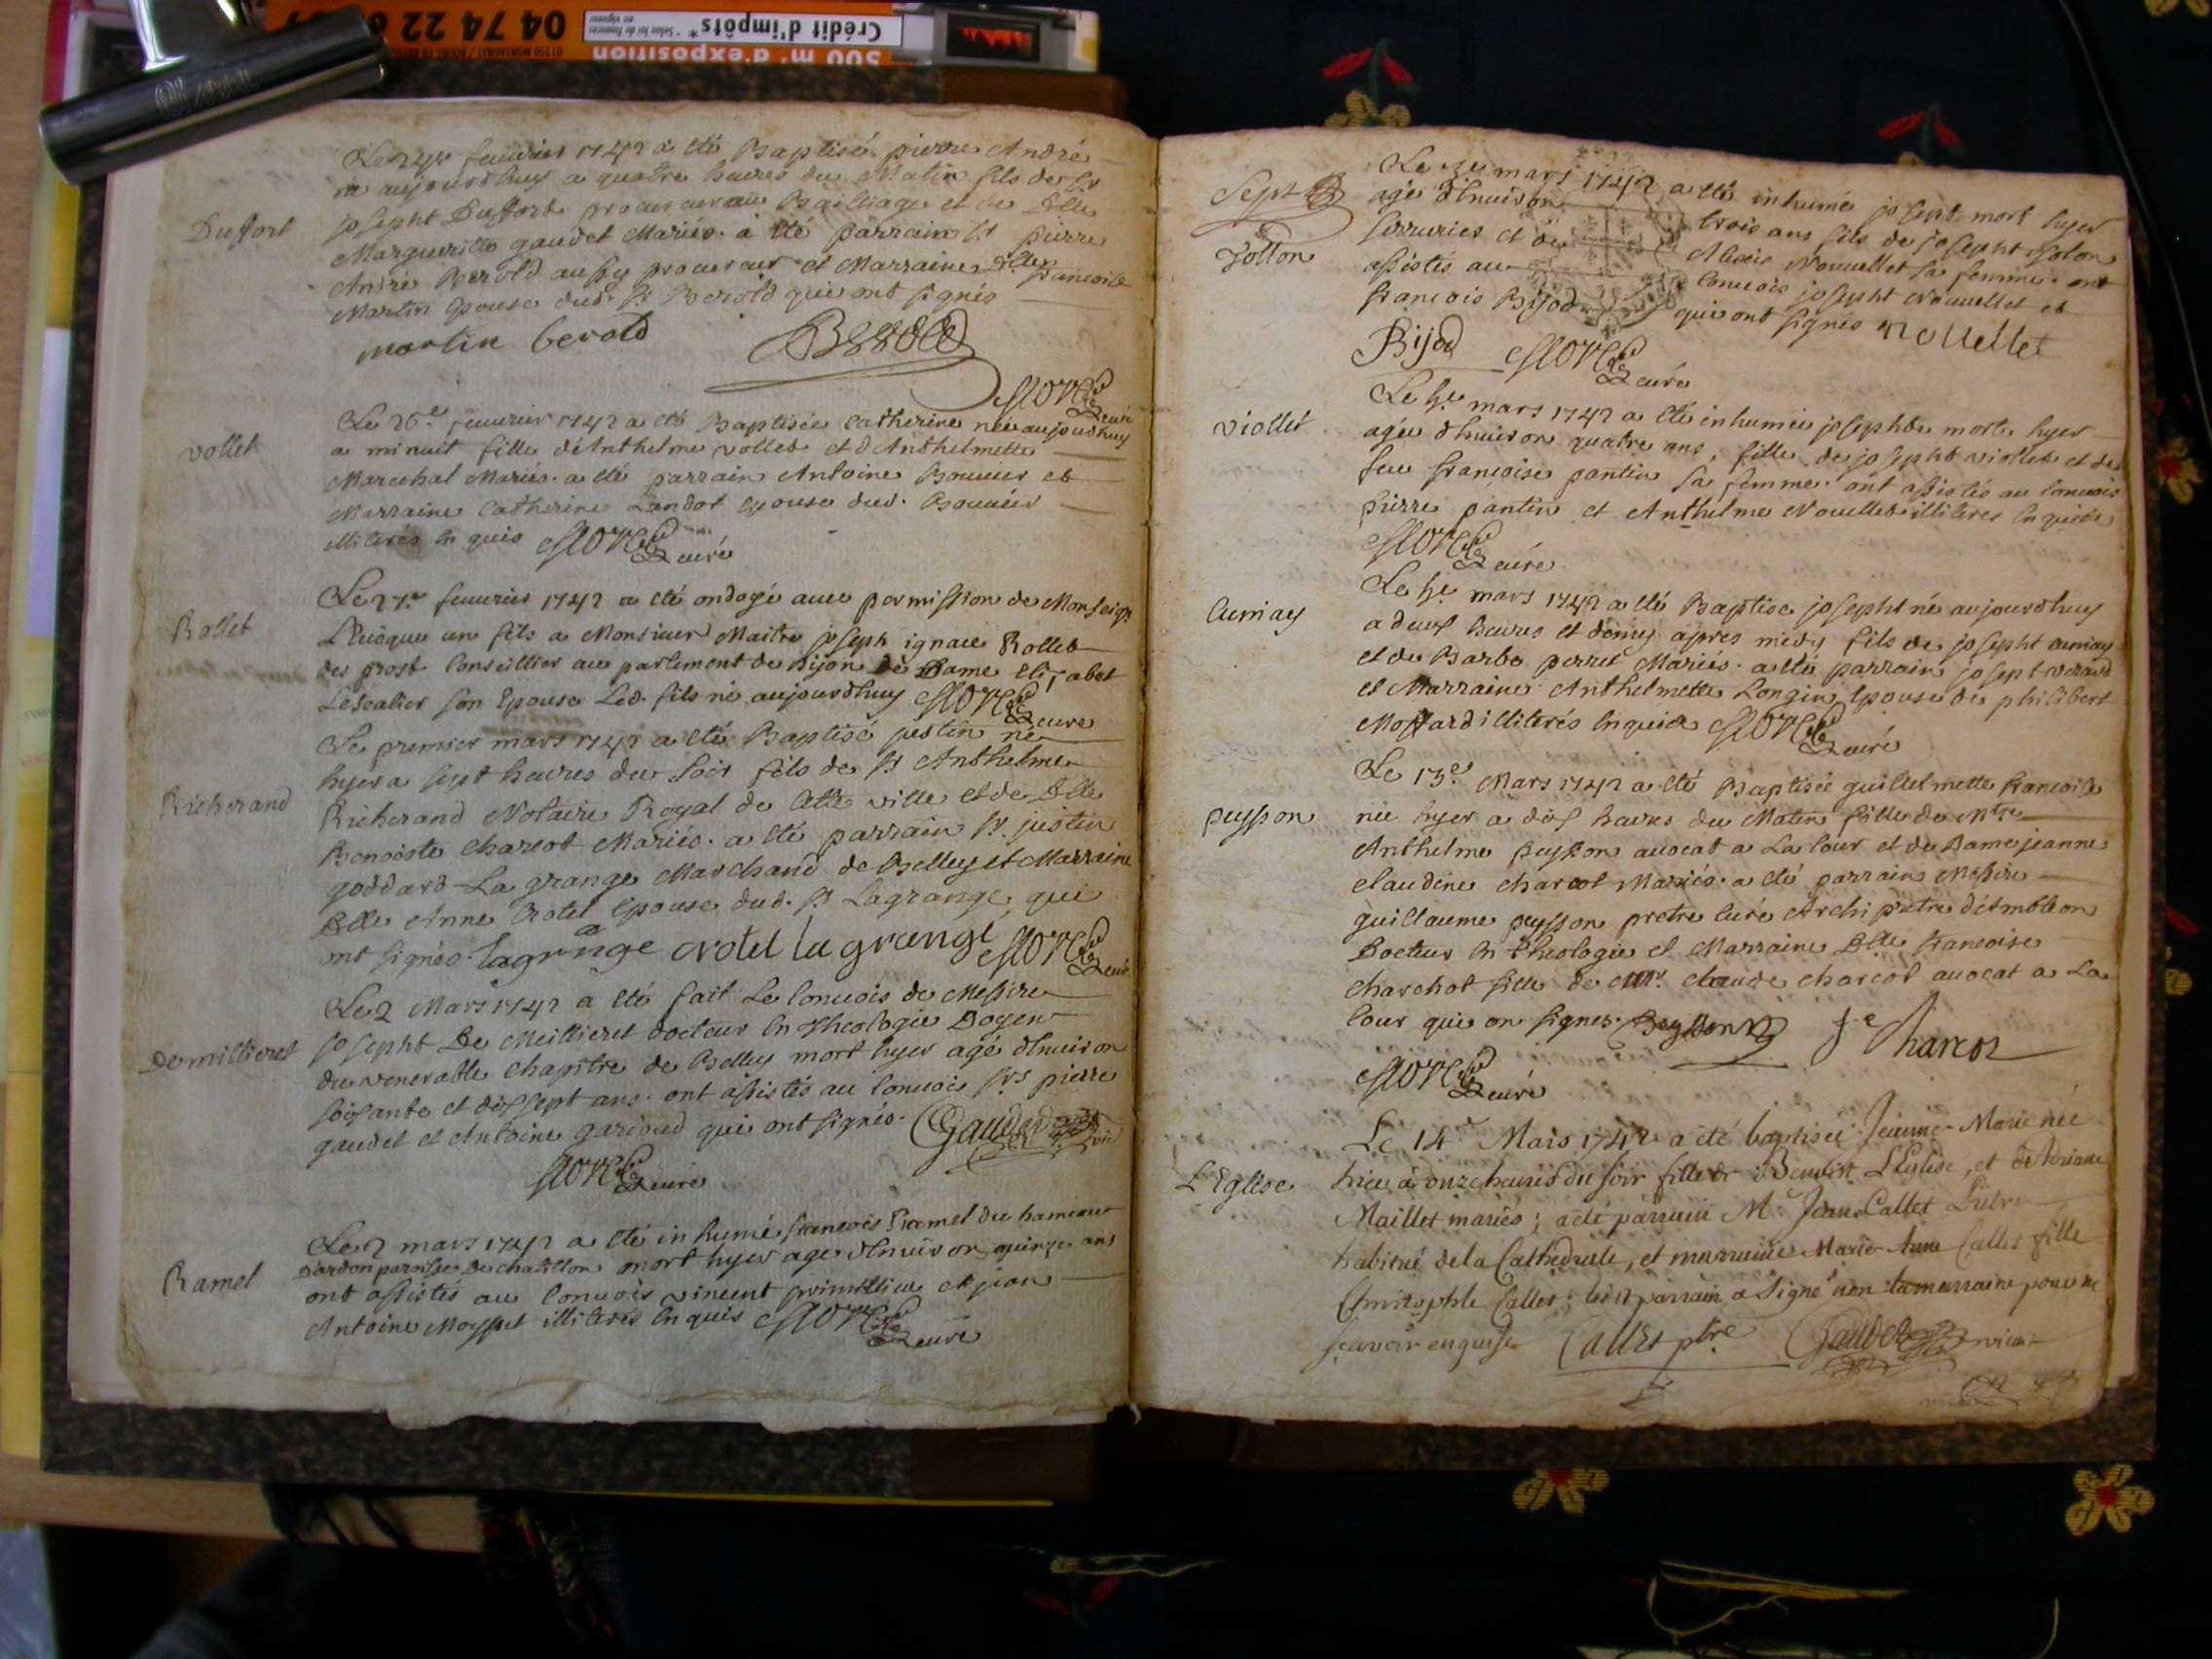 04 74 22
01250 MONTAGNAT / BOURG EN BRESSE
Crédit d'impôts*
* Selon loi de finances
en vigueur
500 m² d'exposition
Le 24e feuurier 1742 a été Baptisé pierre André
né aujourdhuy a quatre heures du Matin fils de Sr
Duffort
josepht Duffort procureur au Bailliage et de Dlle
Margueritte gaudet Mariés. a été parrain Sr pierre
André Berold aussy procureur et Marraine Dlle francoise
Martin Epouse dud. Sr Berold qui ont signés
martin berold
curé
Le 26e feuurier 1742 a été Baptisée Catherine née aujourdhuy
vollet
a minuit fille d'Anthelme vollet et d'Anthelmette
Marechal Mariés. a été parrain Antoine Bouuier et
Marraine Catherine Landot Epouse dud. Bouuier
illiterés Enquis
curé
Le 27e feuurier 1742 a été ondoyé auec permission de Monseigr
Rollet
L'Euêque un fils a Monsieur Maitre joseph ignace Rollet
des prost Conseillier au parlement de Dijon de Dame
Lescalier son Epouse Led. fils né aujourdhuy
curé
Le premier mars 1742 a été Baptisé justin né
hyer a sept heures du soir fils de Sr Anthelme
Richerand
Richerand Notaire Royal de Cette ville et de Dlle
Benoiste Charcot Mariés. a été parrain Sr. justin
goddard La grange Marchand de Belley et Marraine
Dlle Anne Crotel Epouse dud. Sr Lagrange, qui
ont signés. lagrange crotel la grange
curé
Le 2 Mars 1742 a été fait Le Conuois de Messire
Demillieret
josepht De Meillieret docteur En Theologie Doyen
du venerable Chapitre de Belley mort hyer agé d'Enuiron
soisante et dissept ans. ont assistés au Conuois Srs pierre
gaudet et Antoine garioud qui ont signés. Gaudet
curé
Le 2 mars 1742 a été inhumé francois Ramel du hameau
d'ardon paroisse de chatillon mort hyer age d'Enuiron quinze ans
Ramel
ont assistés au Conuois vincent et jean
Antoine Moysset illiterés Enquis
curé
Le 3e mars 1742 a été inhumé josept mort hyer
Sept
agé d'Enuiron trois ans fils de josepht solon
Jolton
serrurier et de Nouuellet sa femme. ont
assistés au Conuois josepht Nouuellet et
francois Bijod qui ont signés nouellet
Bijod
curé
Le 5e mars 1742 a été inhumée josephte morte hyer
viollet
agée d'Enuiron quatre ans, fille de josepht viollet et de
feu francoise pantin sa femme. ont assistés au Conuois
pierre pantin et Anthelme Nouellet illiteres Enquis
curé
Le 5e mars 1742 a été Baptisé josepht né aujourdhuy
Cumay
a deux heures et demy apres midy fils de josepht
et de Barbe perret Mariés. a été parrain josept
et Marraine Anthelmette Longin Epouse de philibert
illiterés Enquis
curé
Le 13e Mars 1742 a été Baptisée guillelmette francoise
peysson
née hyer a dix heures du Matin fille de Mtre
Anthelme peysson auocat a La Cour et de Dame jeanne
claudine charcot Mariés. a été parrain Messire
guillaume peysson pretre curé Archi pretre d'Ambleon
Docteur En Theologie et Marraine Dlle francoise
charchot fille de Mr. claude charcot auocat a La
Cour qui on signes. Peysson fe Charcot
curé
Le 14e Mars 1742 a été baptisée Jeanne-Marie née
L'Eglise
hier à onze heures du soir fille de Benoist L'Eglise, et de
Maillet mariés; a été parrain Mr. Jean Callet Prêtre
habitué de la Cathedrale, et marraine Marie-Anne Callet fille
Christophle Callet; led. parrain a signé non la marraine pour ne
sçavoir enquise Callet ptre Gaudet vicai